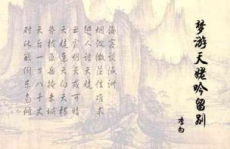 梦游天姥吟留别
李白
海客谈瀛洲
烟涛微茫信难求
越人语天姥
云霞明灭或可睹
天姥连天向天横
势拔五岳掩赤城
天台一万八千丈
对此欲倒东南倾